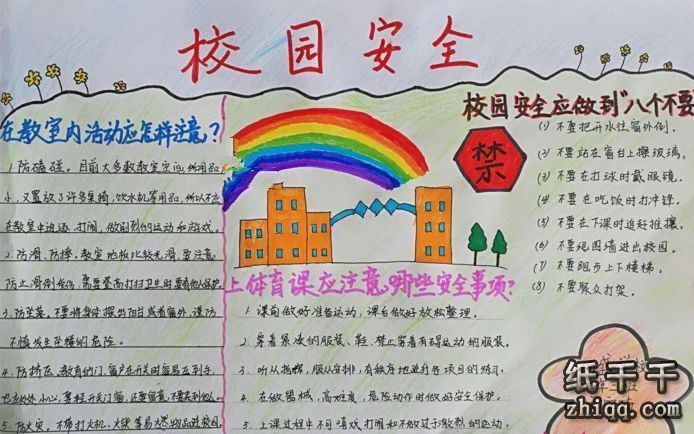 校园安全
在教室内活动应怎样注意？
1.防磕碰，目前大多数教室空间
小，又置放了许多桌椅、饮水机等用品，所以不应
在教室中追逐、打闹，做剧烈的运动和游戏。
2.防滑、防摔，教室地板比较光滑，要注意
防止滑倒受伤；需要登高打扫卫生时要有他人保护
3.防坠落，不要将身体探出阳台或者窗外，谨防
不慎发生坠楼的危险。
4.防挤压，教室的门、窗户在开关时容易压到手，
小心，要轻开关门窗，还要留意，不要夹到他人
5.防火灾，不带打火机、火柴等易燃物品进校园
上体育课应注意哪些安全事项？
1.课前做好准备运动，课后做好放松整理。
2.穿着宽松的服装、鞋，禁止穿着有碍运动的服装。
3.听从指挥，服从安排，有秩序地进行各项目的练习。
4.在做器械，高难度，危险动作时做好安全保护。
5.上课过程中不可嘻戏打闹和不做过于激烈的运动。
校园安全应做到"八个不要"
禁
(1) 不要把开水往窗外倒。
(2) 不要站在窗台上擦玻璃。
(3) 不要在打球时戴眼镜。
(4) 不要在吃饭时打冲锋。
(5) 不要在下课时追赶推攘。
(6) 不要绕围墙进出校园。
(7) 不要跑步上下楼梯。
(8) 不要聚众打架。
纸千千
zhiqq.com